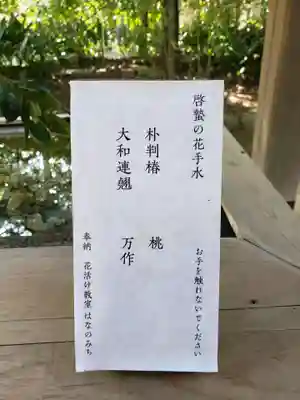 啓蟄の花手水
お手を触れないでください
朴判椿 桃
大和連翹 万作
奉納 花活け教室 はなのみち